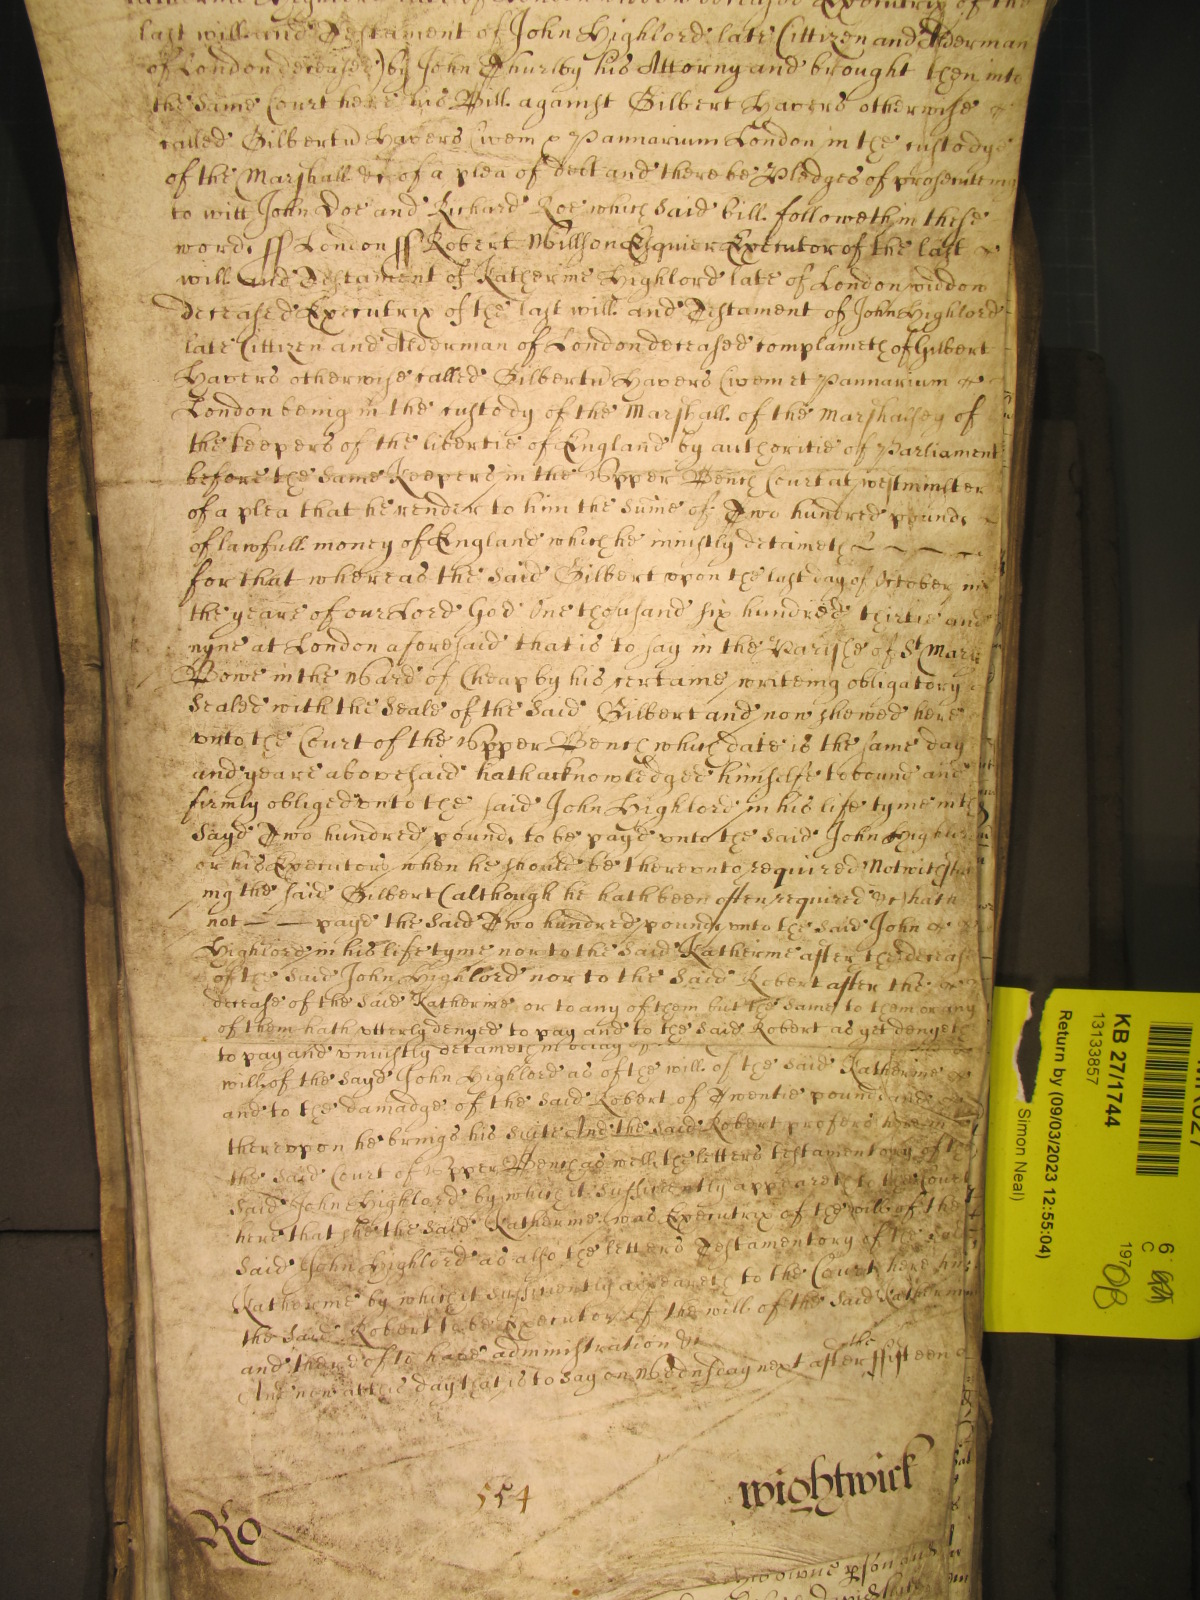 last will and Testament of John Highlord late Cittizen and Alderman
of London deceased) by John Thurlby his Attorny and brought then into
the same Court here his Bill against Gilbert Havers otherwise
called Gilbertu Havers Civem & Pannarium London in the custodye
of the Marshall &c of a plea of debt and there be Pledges of prosecuteing
to witt John Doe and Richard Roe which said bill followeth in these
words ss London ss Robert Willson Esquier Executor of the last
will and Testament of Katherine Highlord late of London widdow
deceased Executrix of the last will and Testament of John Highlord
late Cittizen and Alderman of London deceased complaineth of Gilbert
Havers otherwise called Gilbertu Havers Civem et Pannarium
London being in the custody of the Marshall of the Marshalsey of
the keepers of the libertie of England by authoritie of Parliament
before the same Keepers in the Upper Bench Court at westminster
of a plea that he render to him the sume of Two hundred pounds
of lawfull money of England which he iniustly detaineth
for that whereas the said Gilbert upon the last day of October in
the yeare of our Lord God One thousand six hundred thirtie and
nyne at London aforesaid that is to say in the Parishe of St Mary
Bowe in the Ward of Cheap by his certaine writeing obligatory
Sealed with the Seale of the said Gilbert and now shewed here
unto the Court of the Upper Bench which date is the same day
and yeare abovesaid hath acknowledged himselfe to bound and
firmly obliged unto the said John Highlord in his life tyme in the
sayd Two hundred pounds to be payd unto the said John Highlord
or his Executors when he should be thereunto required
ing the said Gilbert (although he hath been often required &c) hath
not payd the said Two hundred pounds unto the said John
Highlord in his life tyme nor to the said Katherine after the decease
of the said John Highlord nor to the said Robert after the
decease of the said Katherine or to any of them but the same to them or any
of them hath utterly denyed to pay and to the said Robert as yet denyeth
to pay and uniustly detaineth in delay of
will of the sayd John Highlord as of the will of the said Katherine
and to the damadge of the said Robert of Twentie pounds and
thereupon he brings his suite And the said Robert profers here in
the said Court of Upper Bench as well the letters testamentory of the
said John Highlord by which it sufficiently appeareth to the Court
here that she the said Katherine was Executrix of the will of the
said John Highlord as also the letters Testamentory of the said
Katherine by which it sufficiently appeareth to the Court here him
the said Robert to be Executor of the will of the said Katherine
and thereof to have administration &c
And now at this day that is to say on Wednesday next after the fifteen
Ro
554
wightwick
owne pson
KB 27/1744
13133857
Return by (09/03/2023 12:55:04)
Simon Neal)
6
C
197